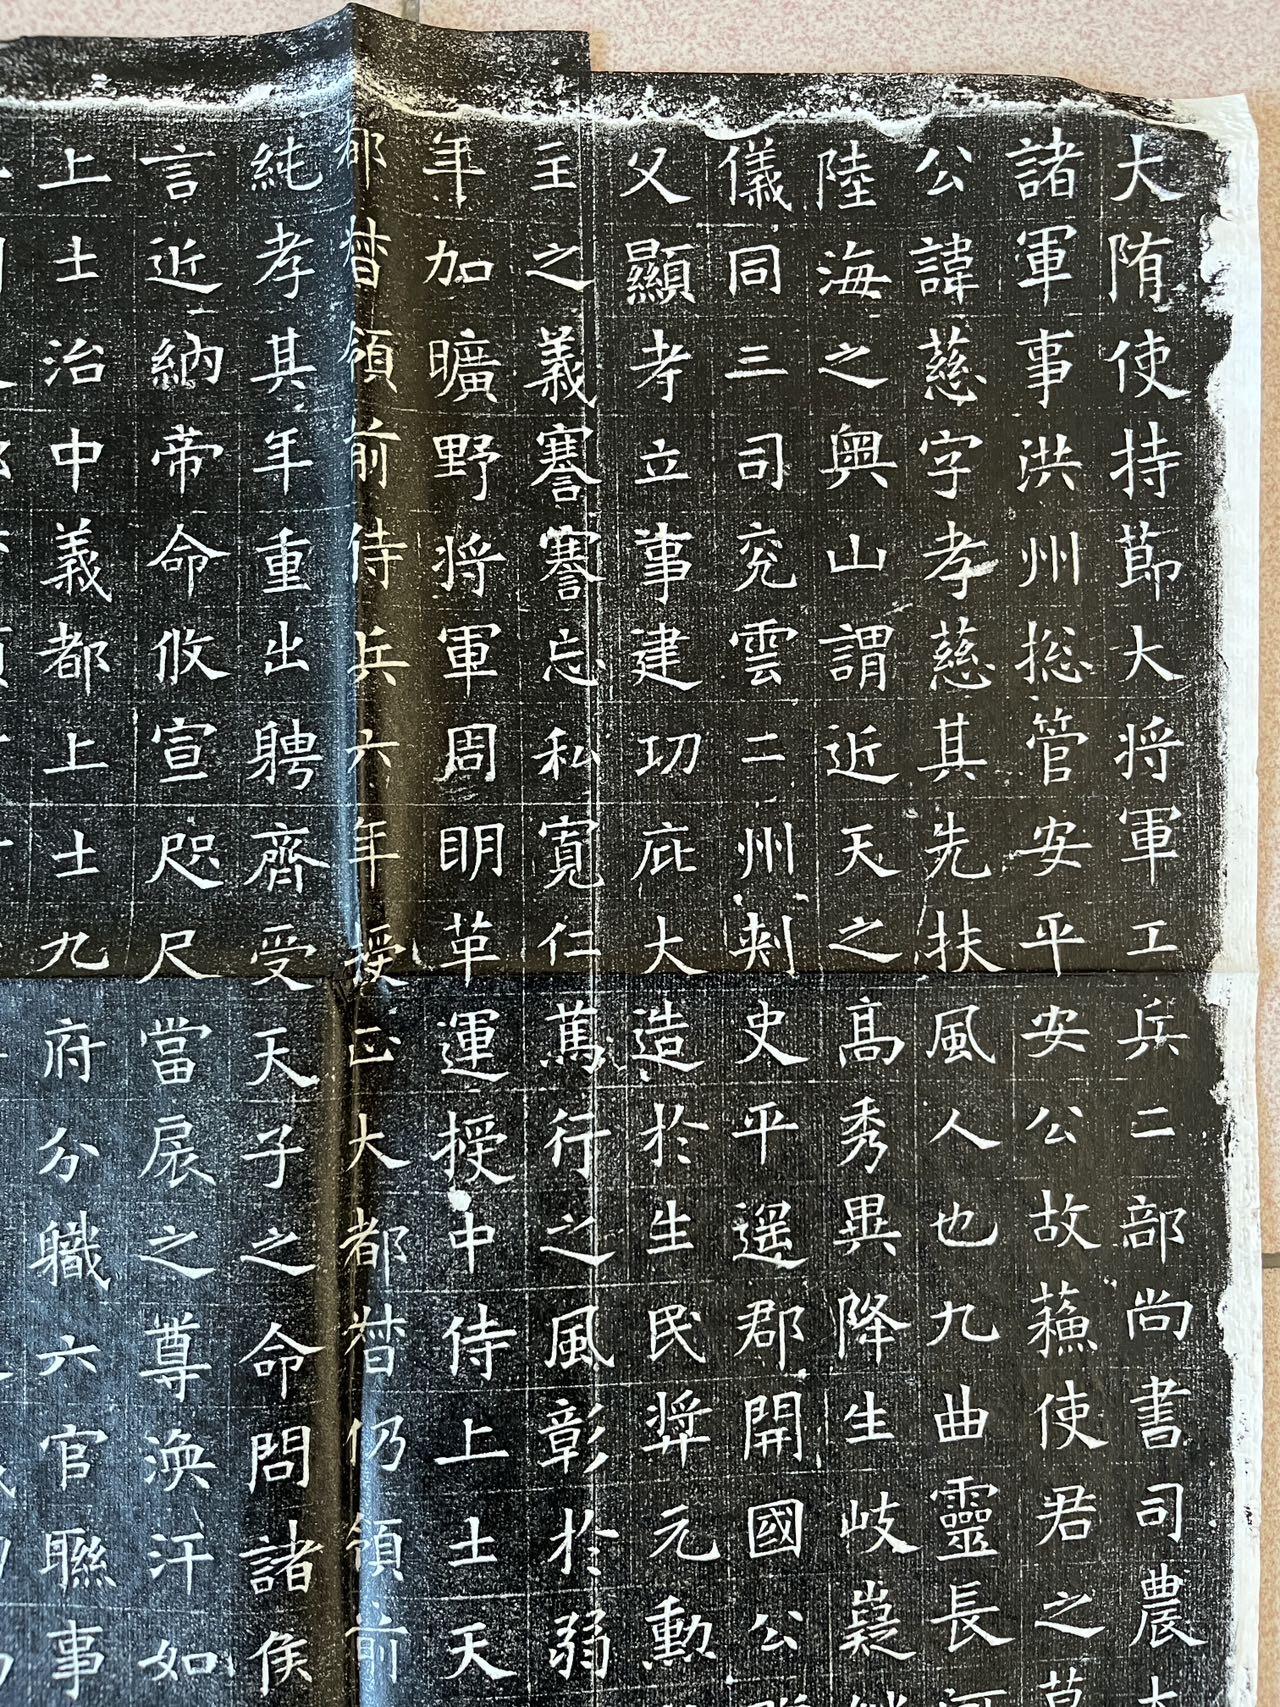 大隋使持節大将軍工兵二部尚書司農
諸軍事洪州捴管安平安公故蘓使君之
公諱慈字孝慈其先扶風人也九曲靈長
陸海之奥山謂近天之高秀異降生岐嶷
儀同三司兖雲二州刺史平遥郡開國公
父顯孝立事建切庇大造於生民奨元勲
主之義謇謇忘私寛仁篤行之風彰於弱
年加曠野将軍周明革運授中侍上士天
都督領前侍兵六年授正大都督仍領前
純孝其年重出聘齊受天子之命問諸侯
言近納帝命攸宣咫尺當扆之尊渙汗如
上士治中義都上士九府分職六官聯事